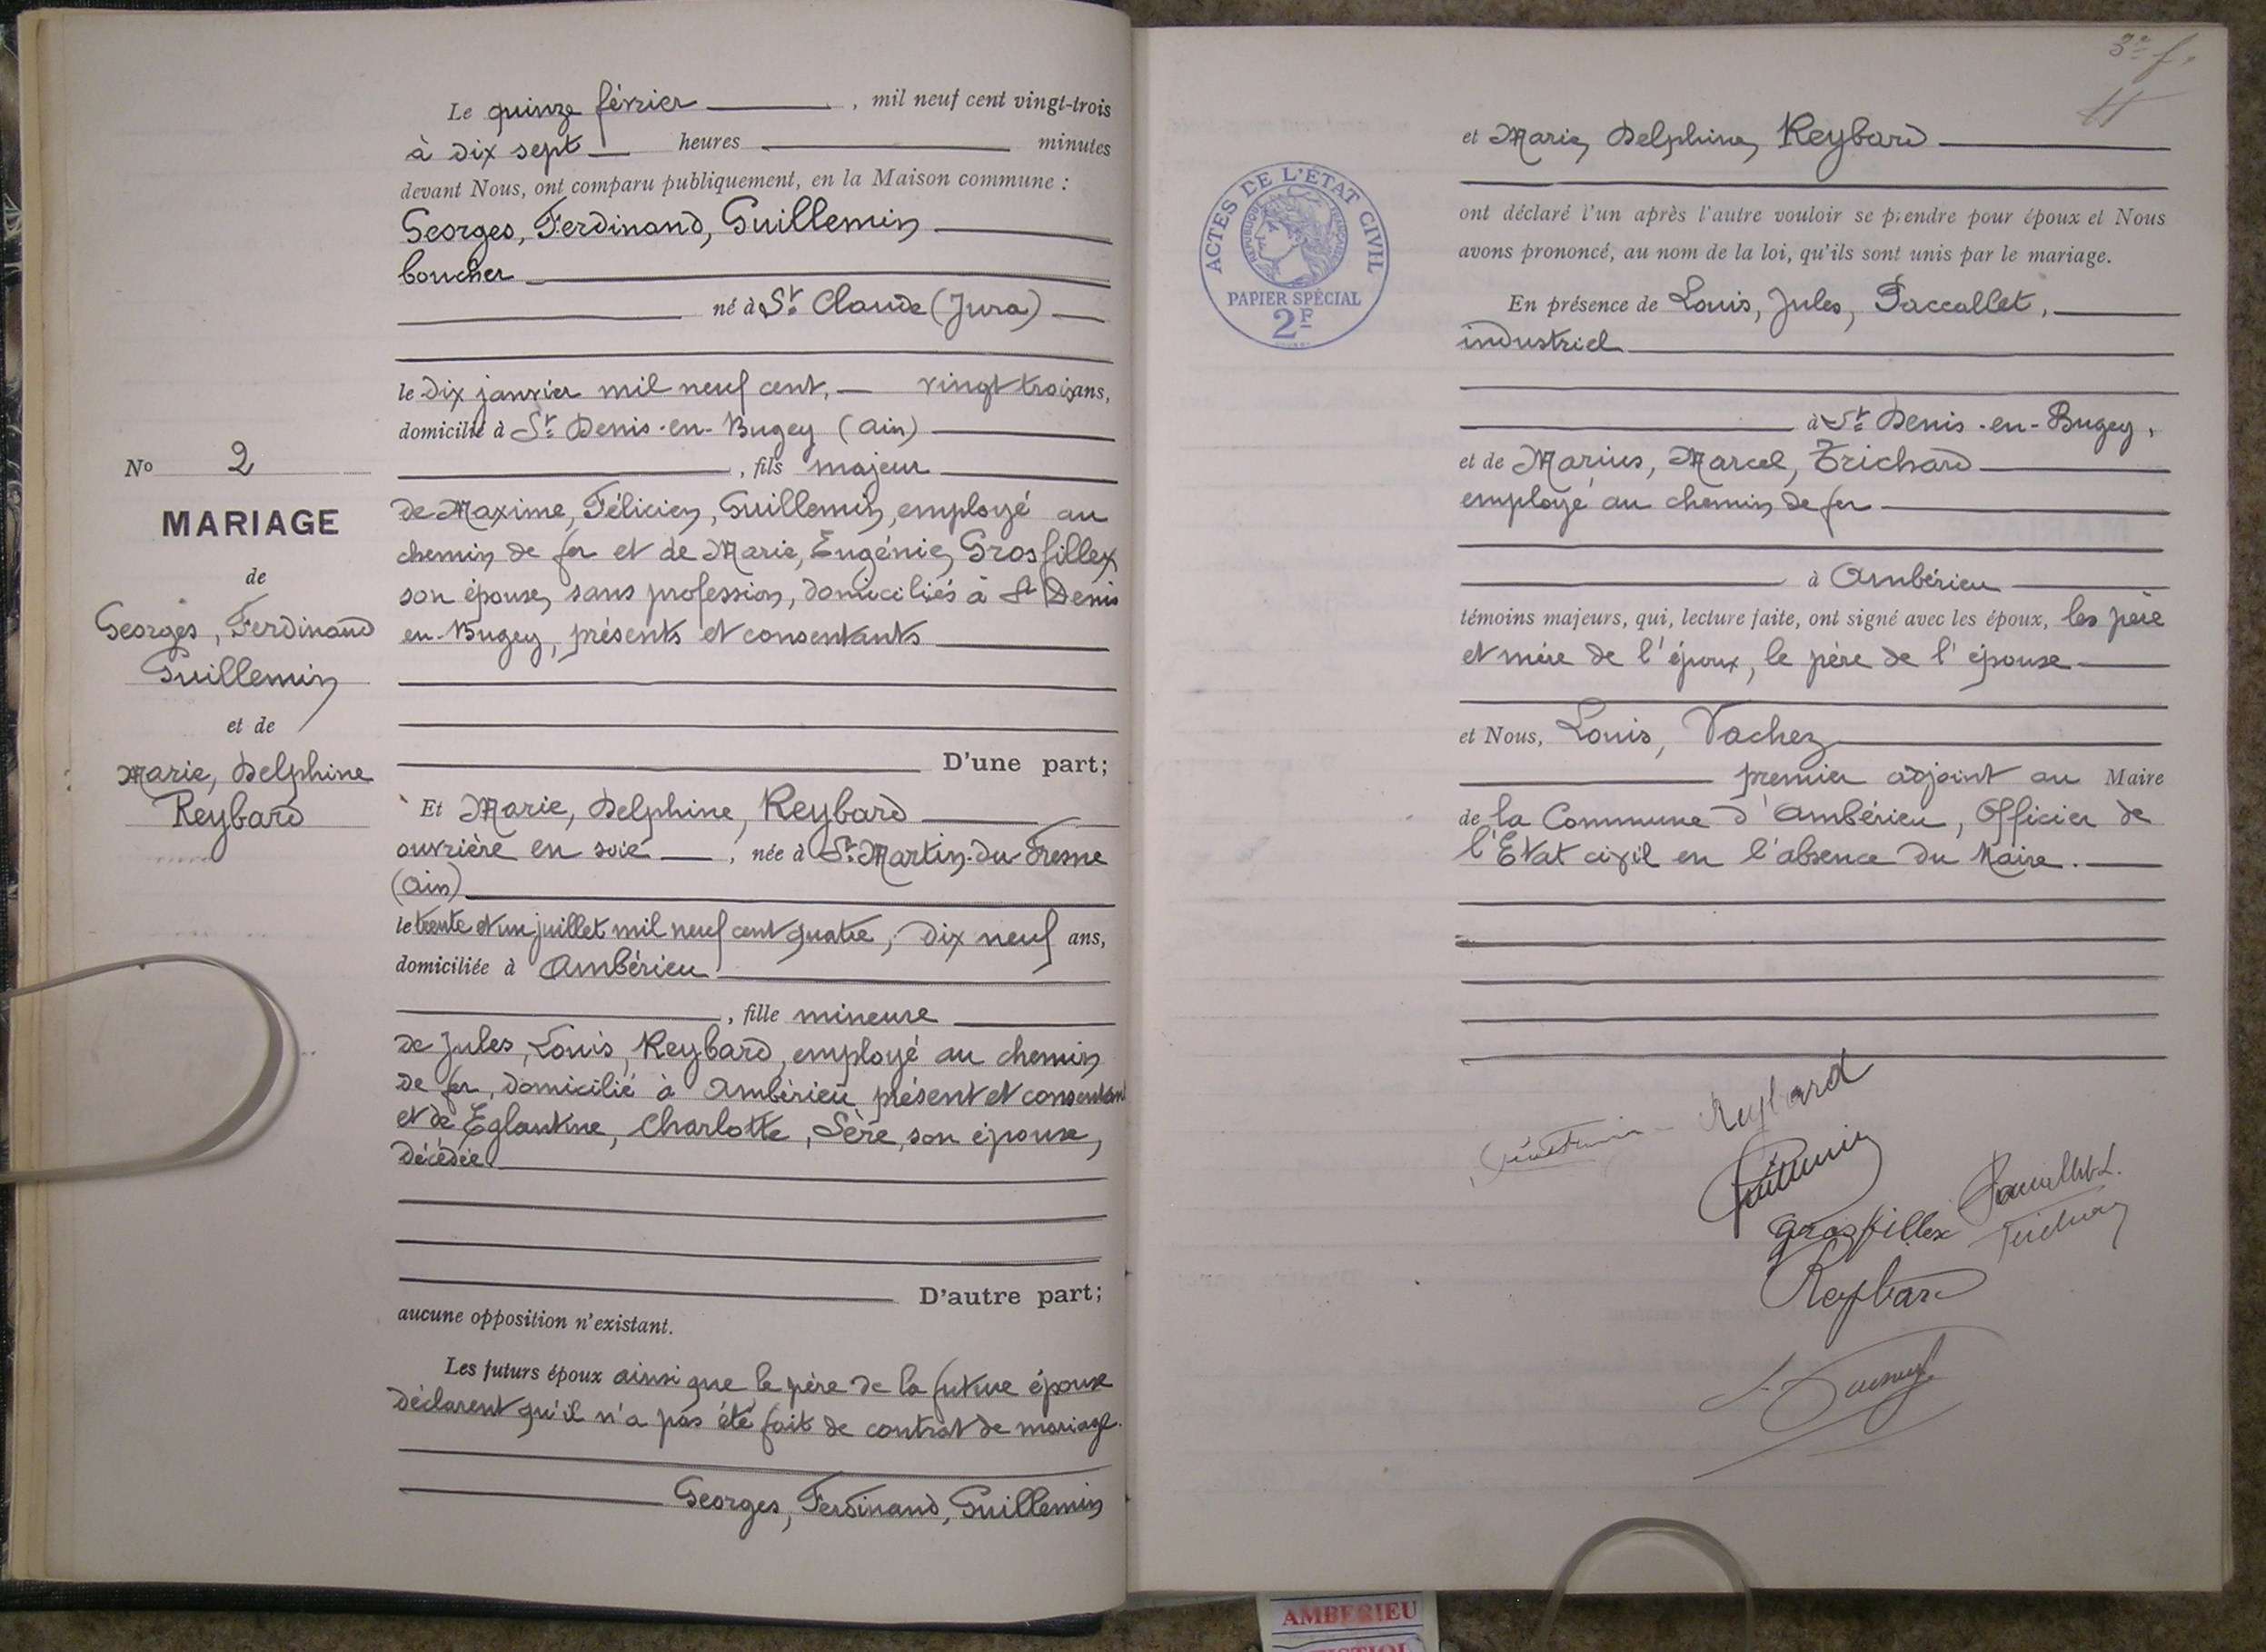 Le quinze février, mil neuf cent vingt-trois
à dix sept heures minutes
devant Nous, ont comparu publiquement, en la Maison commune :
Georges, Ferdinand, Guillemin
boucher
né à St Claude (Jura)
le dix janvier mil neuf cent, vingt trois ans,
domicilié à St Denis-en-Bugey (Ain)
, fils majeur
de Maxime, Félicien, Guillemin, employé au
chemin de fer et de Marie, Eugénie, Grosfillex
son épouse, sans profession, domiciliés à St Denis
en-Bugey, présents et consentants
D'une part;
Et Marie, Delphine, Reybard
ouvrière en soie, née à St Martin-du-Fresne
(Ain)
le trente et un juillet mil neuf cent quatre, dix neuf ans,
domiciliée à Ambérieu
, fille mineure
de Jules, Louis, Reybard, employé au chemin
de fer, domicilié à Ambérieu présent et consentant
et de Eglantine, Charlotte, Sère, son épouse,
décédée.
D'autre part;
aucune opposition n'existant.
Les futurs époux ainsi que le père de la future épouse
déclarent qu'il n'a pas été fait de contrat de mariage.
Georges, Ferdinand, Guillemin
No 2
MARIAGE
de
Georges, Ferdinand
Guillemin
et de
Marie, Delphine
Reybard
3e f.
et Marie, Delphine, Reybard
ont déclaré l'un après l'autre vouloir se prendre pour époux et Nous
avons prononcé, au nom de la loi, qu'ils sont unis par le mariage.
En présence de Louis, Jules, Paccallet,
industriel
à St Denis-en-Bugey,
et de Marius, Marcel, Trichard
employé au chemin de fer
à Ambérieu
témoins majeurs, qui, lecture faite, ont signé avec les époux, les père
et mère de l'époux, le père de l'épouse
et Nous, Louis, Vachez
premier adjoint au Maire
de la Commune d'Ambérieu, Officier de
l'Etat civil en l'absence du Maire.
ACTES DE L'ÉTAT CIVIL
RÉPUBLIQUE FRANÇAISE
PAPIER SPÉCIAL
2F
Reybard
Guillemin
Grosfillex
Trichard
Reybard
AMBERIEU